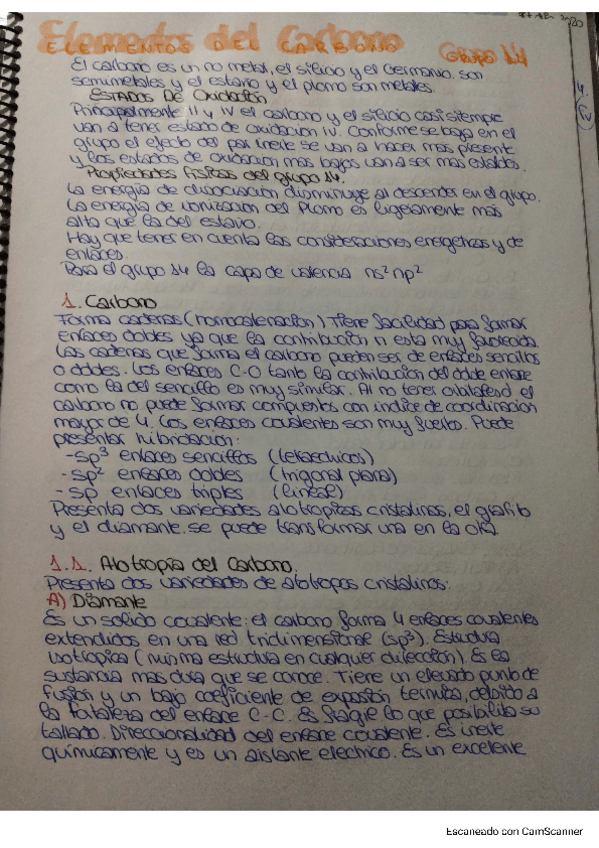 Elementos del Carbono
ELEMENTOS DEL CARBONO GRUPO 14
El carbono es un no metal, el silicio y el Germanio son
semimetales y el estaño y el plomo son metales.
ESTADOS DE Oxidación
Principalmente II y IV el carbono y el silicio casi siempre
van a tener estado de oxidación IV. Conforme se baja en el
grupo el efecto del par inerte se van a hacer más presente
y los estados de oxidación más bajos van a ser más estables.
Propiedades físicas del grupo 14.
La energía de disociación disminuye al descender en el grupo.
La energía de ionización del Plomo es ligeramente más
alta que la del estaño.
Hay que tener en cuenta las consideraciones energéticas y de
enlaces.
Para el grupo 14 la capa de valencia ns² np²
1. Carbono
Forma cadenas (homocatenación) Tiene facilidad para formar
enlaces dobles ya que la contribución π esta muy favorecida.
Las cadenas que forma el carbono pueden ser de enlaces sencillos
o dobles. Los enlaces C-O tanto la contribución del doble enlace
como la del sencillo es muy similar. Al no tener orbitales d el
carbono no puede formar compuestos con indice de coordinacion
mayor de 4. Los enlaces covalentes son muy fuertes. Puede
presentar hibridación:
-sp³ enlaces sencillos (tetraédricos)
-sp² enlaces dobles (trigonal plana)
-sp enlaces triples (lineal)
Presenta dos variedades alotrópicas cristalinas, el grafito
y el diamante. se puede transformar una en la otra.
1.1. Alotropía del Carbono.
Presenta dos variedades de alotropos cristalinos:
A) Diamante
Es un solido covalente: el carbono forma 4 enlaces covalentes
extendidos en una red tridimensional (sp³). Estructura
isotrópica (misma estructura en cualquier dirección). Es la
sustancia mas dura que se conoce. Tiene un elevado punto de
fusión y un bajo coeficiente de expansión térmica, debido a
la fortaleza del enlace C-C. Es frágil lo que posibilita su
tallado. Direccionalidad del enlace covalente. Es inerte
químicamente y es un aislante electrico. Es un excelente
Escaneado con CamScanner